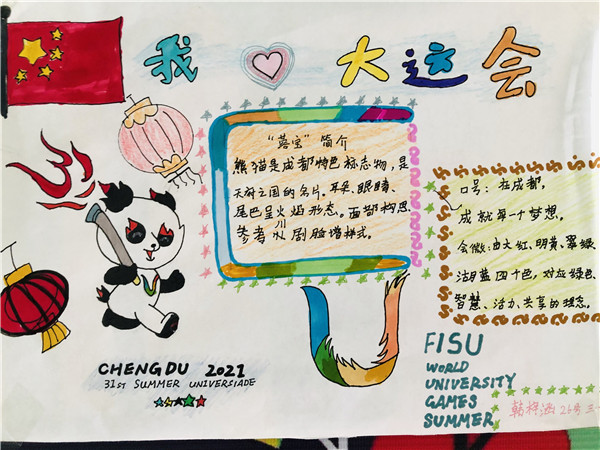 我 大运会
"蓉宝"简介
熊猫是成都特色标志物,是
天府之国的名片。耳朵、眼睛、
尾巴呈火焰形态。面部构思
参考川剧脸谱样式。
口号:在成都,
成就每一个梦想。
会徽:由大红、明黄、翠绿、
湖蓝四个色,对应绿色、
智慧、活力、共享的理念。
CHENGDU 2021
31ST SUMMER UNIVERSIADE
FISU
WORLD
UNIVERSITY
GAMES
SUMMER